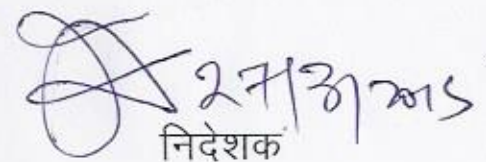 27/3/2015
निदेशक